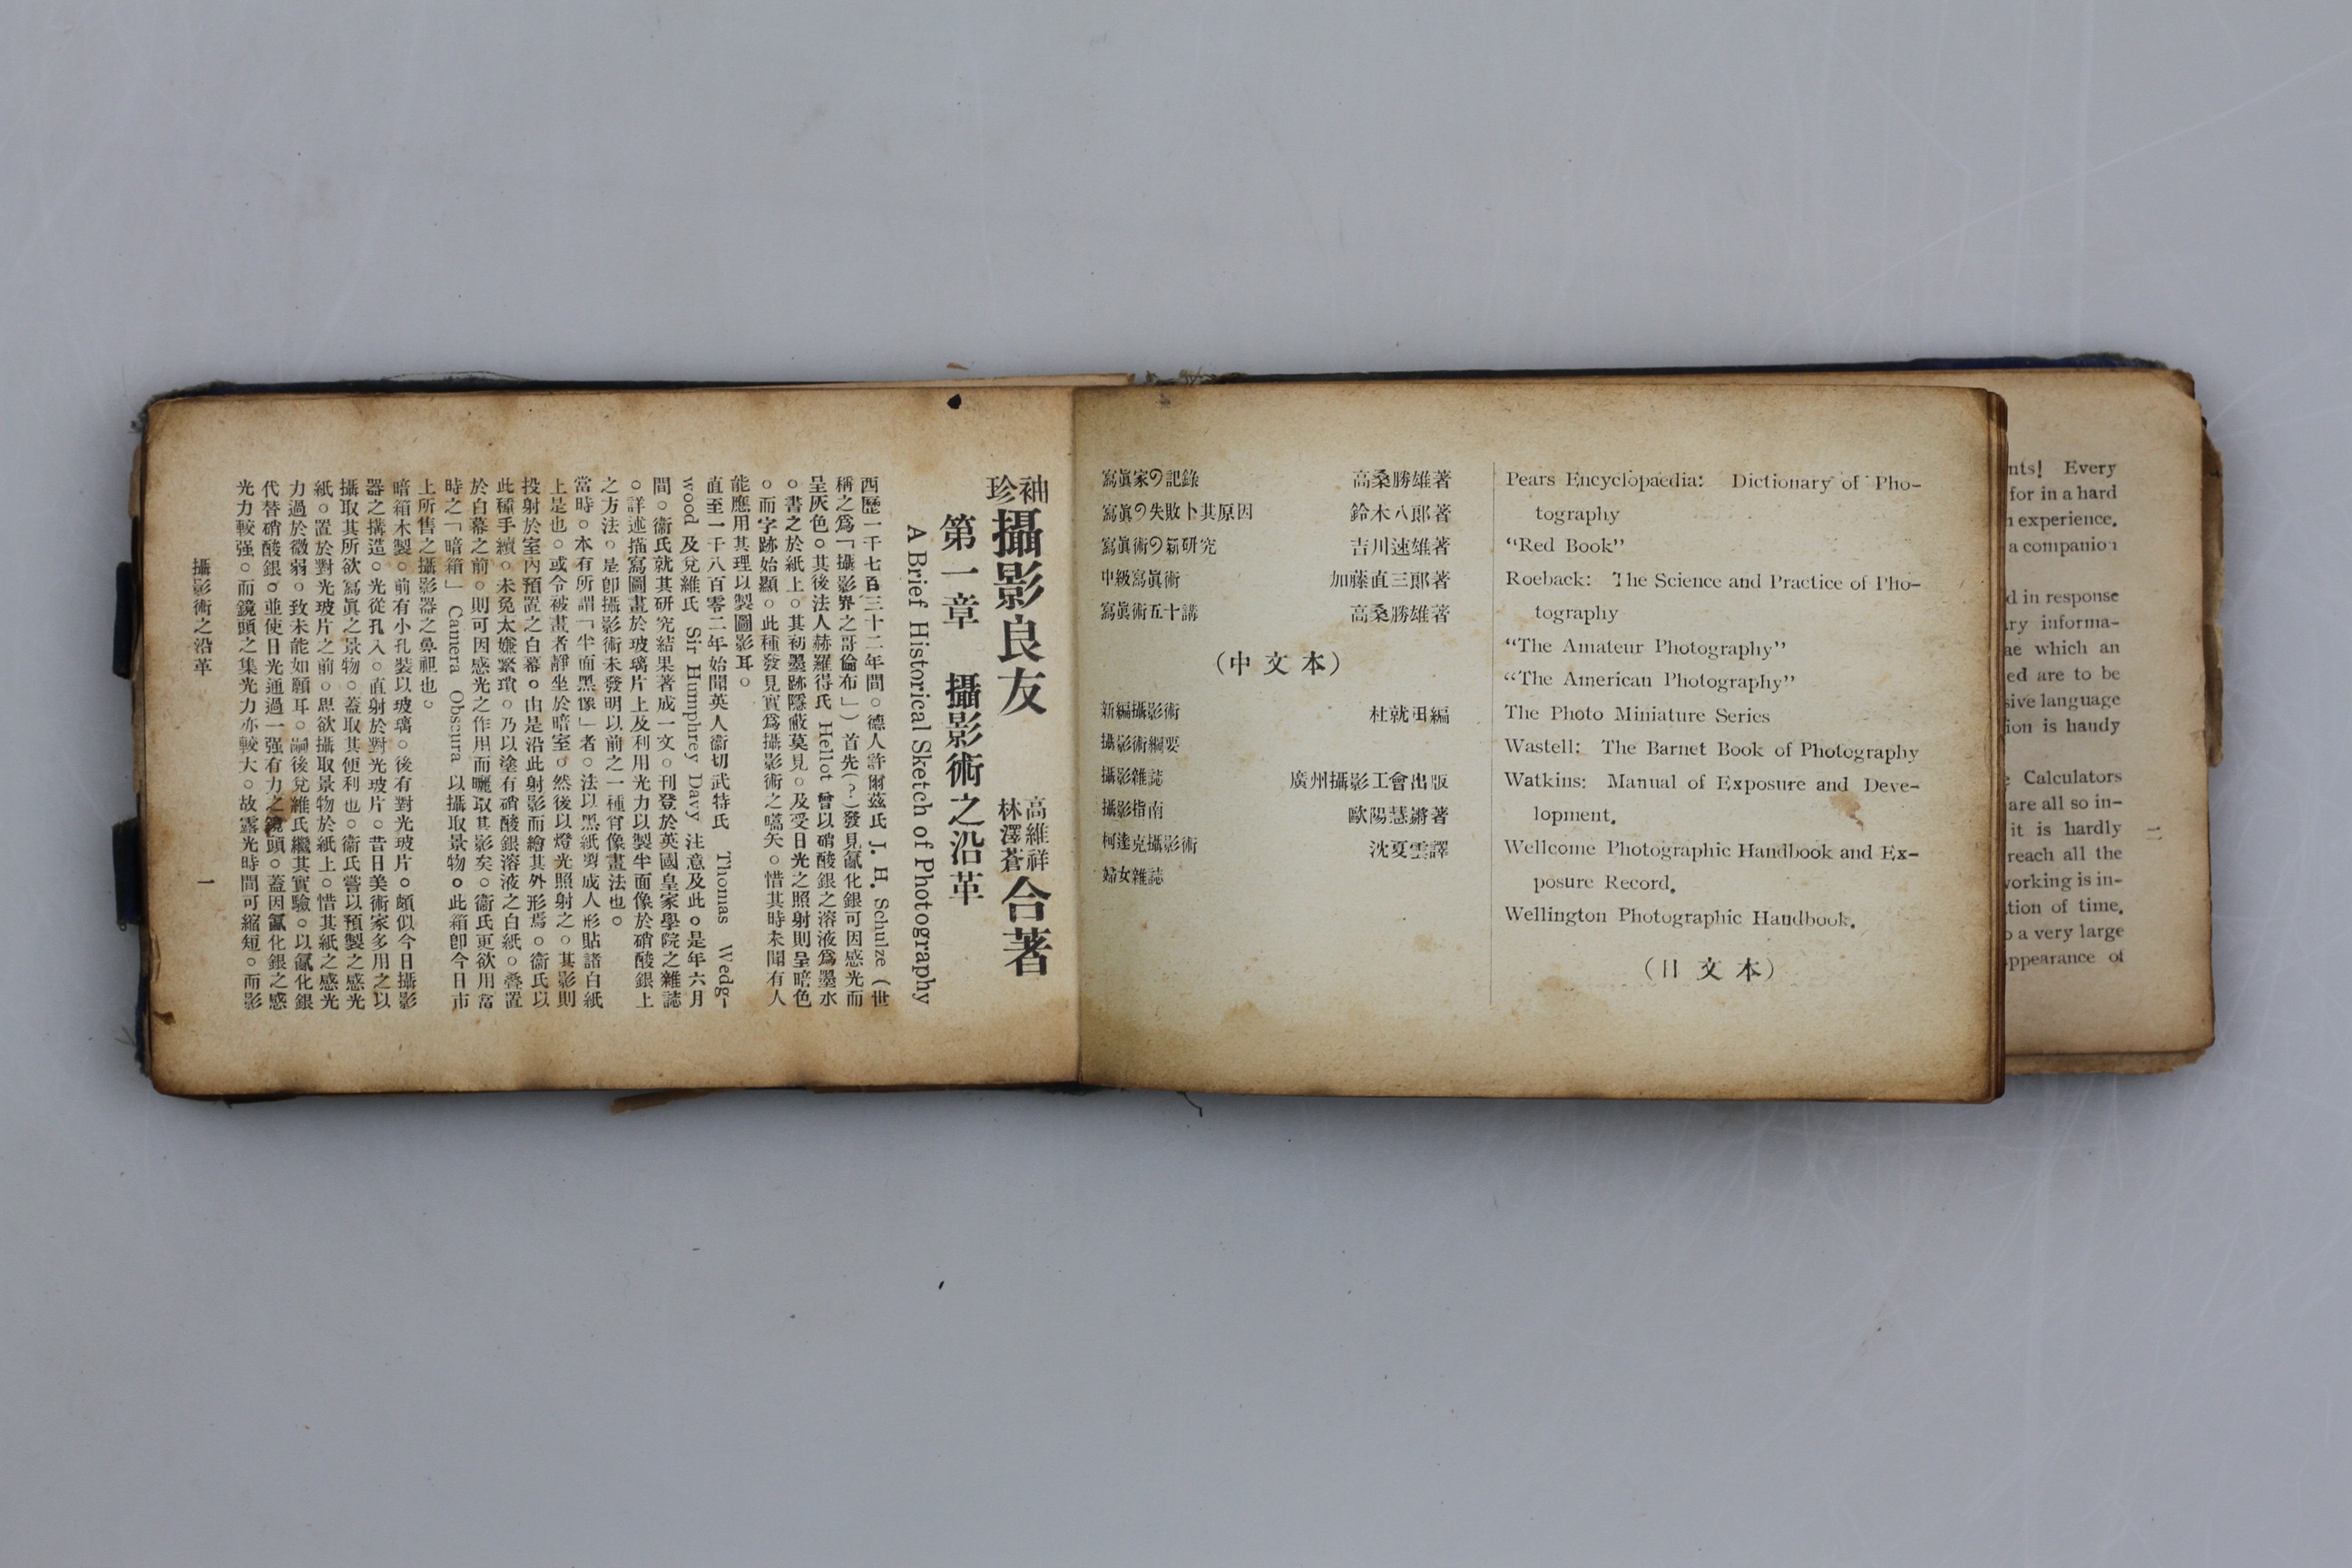 nts! Every
for in a hard
experience.
a companion
d in response
ry informa-
ae which an
ed are to be
sive language
ion is handy
Calculators
are all so in-
it is hardly
reach all the
working is in-
tion of time.
a very large
ppearance of
二
Pears Encyclopaedia: Dictionary of Pho-
tography
“Red Book”
Roeback: The Science and Practice of Pho-
tography
“The Amateur Photography”
“The American Photography”
The Photo Miniature Series
Wastell: The Barnet Book of Photography
Watkins: Manual of Exposure and Deve-
lopment.
Wellcome Photographic Handbook and Ex-
posure Record.
Wellington Photographic Handbook.
(日文本)
寫眞家の記錄 高桑勝雄著
寫眞の失敗卜其原因 鈴木八郞著
寫眞術の新研究 吉川速雄著
中級寫眞術 加藤直三郞著
寫眞術五十講 高桑勝雄著
(中文本)
新編攝影術 杜就田編
攝影術綱要
攝影雜誌 廣州攝影工會出版
攝影指南 歐陽慧鏘著
柯達克攝影術 沈夏雲譯
婦女雜誌
袖珍攝影良友 高維祥 林澤蒼 合著
第一章 攝影術之沿革
A Brief Historical Sketch of Photography
西歷一千七百三十二年間。德人許爾茲氏 J. H. Schulze (世
稱之爲「攝影界之哥倫布」)首先(?)發見氯化銀可因感光而
呈灰色。其後法人赫羅得氏 Hellot 曾以硝酸銀之溶液爲墨水
。書之於紙上。其初墨跡隱蔽莫見。及受日光之照射則呈暗色
。而字跡始顯。此種發見實爲攝影術之嚆矢。惜其時未聞有人
能應用其理以製圖影耳。
直至一千八百零二年始聞英人衞切武特氏 Thomas Wedg-
wood 及兌維氏 Sir Humphrey Davy 注意及此。是年六月
間。衞氏就其研究結果著成一文。刊登於英國皇家學院之雜誌
。詳述描寫圖畫於玻璃片上及利用光力以製半面像於硝酸銀上
之方法。是卽攝影術未發明以前之一種肖像畫法也。
當時。本有所謂「半面黑像」者。法以黑紙剪成人形貼諸白紙
上是也。或令被畫者靜坐於暗室。然後以燈光照射之。其影則
投射於室內預置之白幕。由是沿此射影而繪其外形焉。衞氏以
此種手續。未免太嫌緊瑣。乃以塗有硝酸銀溶液之白紙。叠置
於白幕之前。則可因感光之作用而曬取其影矣。衞氏更欲用當
時之「暗箱」 Camera Obscura 以攝取景物。此箱卽今日市
上所售之攝影器之鼻祖也。
暗箱木製。前有小孔裝以玻璃。後有對光玻片。頗似今日攝影
器之搆造。光從孔入。直射於對光玻片。昔日美術家多用之以
攝取其所欲寫眞之景物。蓋取其便利也。衞氏嘗以預製之感光
紙。置於對光玻片之前。思欲攝取景物於紙上。惜其紙之感光
力過於微弱。致未能如願耳。嗣後兌維氏繼其實驗。以氯化銀
代替硝酸銀。並使日光通過一强有力之鏡頭。蓋因氯化銀之感
光力較强。而鏡頭之集光力亦較大。故露光時間可縮短。而影
攝影術之沿革
一